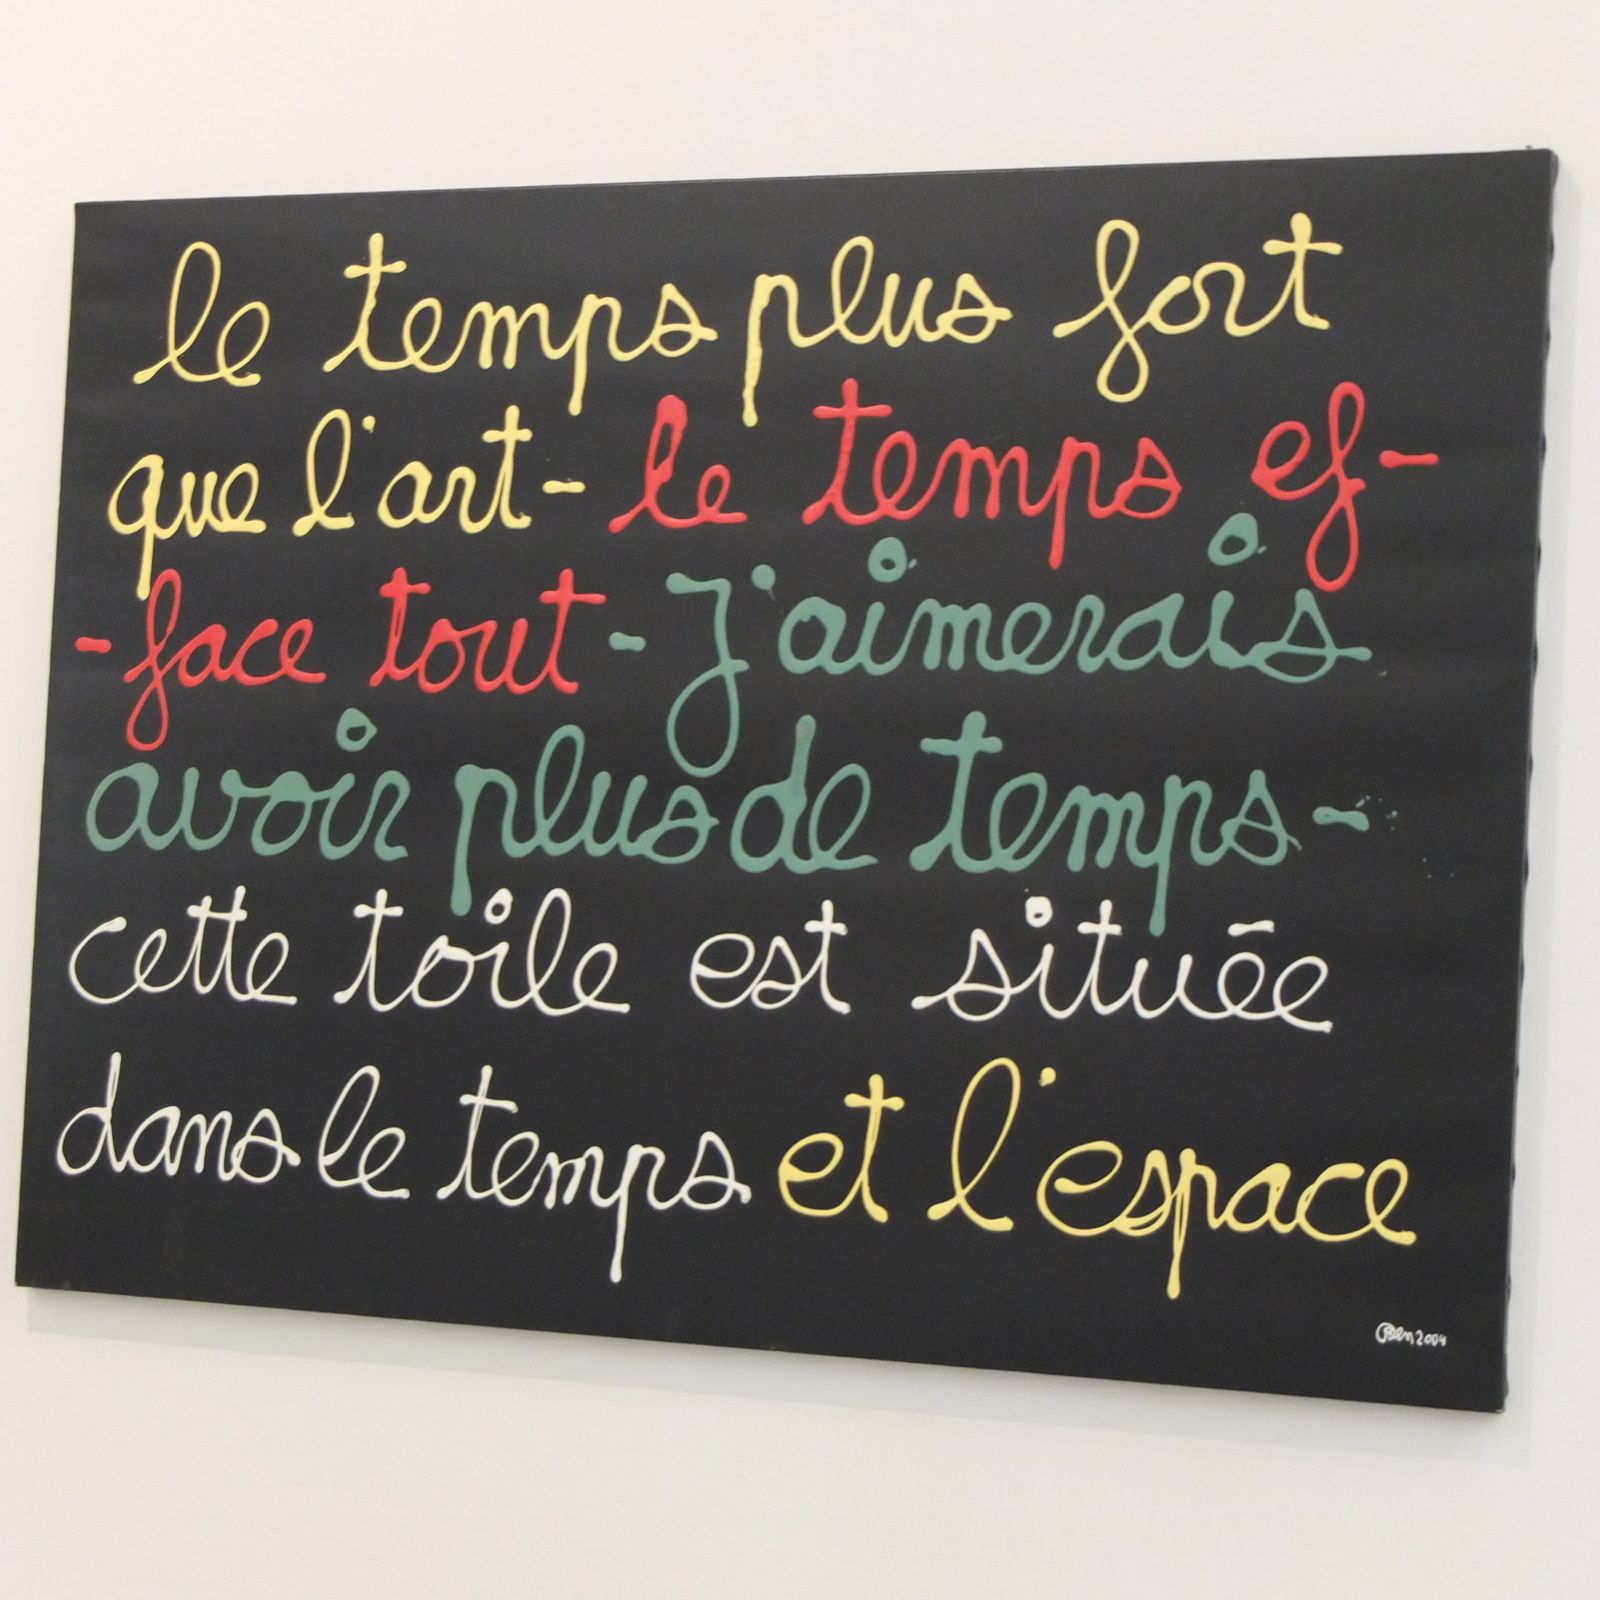 le temps plus fort
que l'art - le temps ef-
-face tout - J'aimerais
avoir plus de temps -
cette toile est située
dans le temps et l'espace
Ben 2004